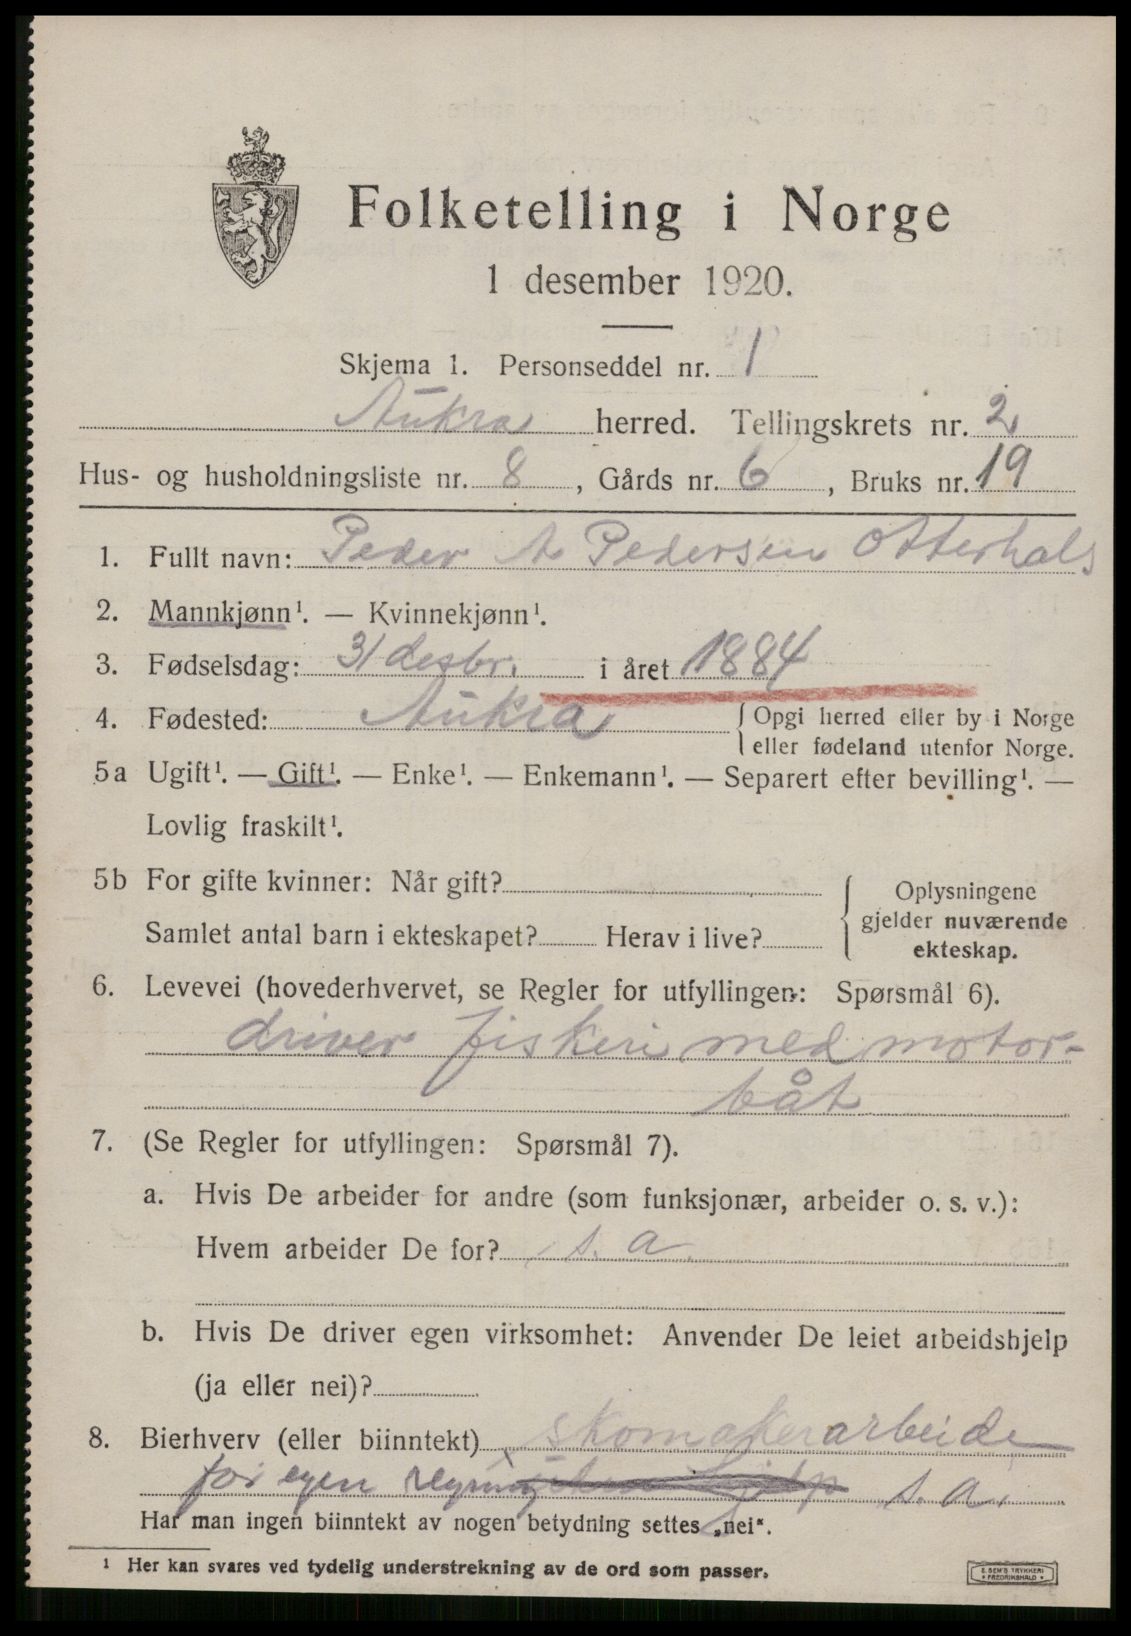 Folketelling i Norge
1 desember 1920.
Skjema 1. Personseddel nr. 1
Aukra herred. Tellingskrets nr. 2
Hus- og husholdningsliste nr. 8, Gårds nr. 6, Bruks nr. 19
1. Fullt navn: Peder A Pedersen Otterhals
2. Mannkjønn¹. — Kvinnekjønn¹.
3. Fødselsdag: 31 desbr. i året 1884
4. Fødested: Aukra {Opgi herred eller by i Norge
eller fødeland utenfor Norge.
5a Ugift¹. — Gift¹. — Enke¹. — Enkemann¹. — Separert efter bevilling¹. —
Lovlig fraskilt¹.
5b For gifte kvinner: Når gift? { Oplysningene
gjelder nuværende
Samlet antal barn i ekteskapet? Herav i live?
ekteskap.
6. Levevei (hovederhvervet, se Regler for utfyllingen: Spørsmål 6).
driver fiskeri med motor-
båt
7. (Se Regler for utfyllingen: Spørsmål 7).
a. Hvis De arbeider for andre (som funksjonær, arbeider o. s. v.):
Hvem arbeider De for? s. a.
b. Hvis De driver egen virksomhet: Anvender De leiet arbeidshjelp
(ja eller nei)?
8. Bierhverv (eller biinntekt) skomakerarbeide
for egen regning s. a.
Har man ingen biinntekt av nogen betydning settes „nei“.
¹ Her kan svares ved tydelig understrekning av de ord som passer.
E. SEM'S TRYKKERI
FREDRIKSHALD